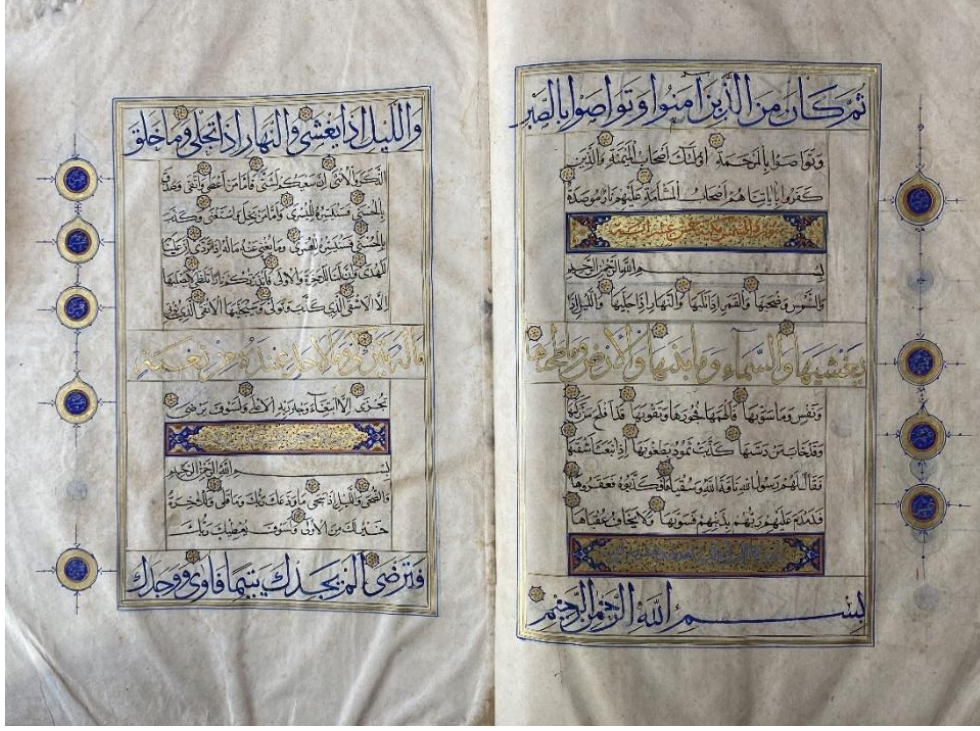 ثم كان من الذين امنوا وتواصوا بالصبر
وتواصوا بالمرحمة اولئك اصحاب الميمنة والذين
كفروا باياتنا هم اصحاب المشامة عليهم نار موصدة
سورة والشمس
بسم الله الرحمن الرحيم
والشمس وضحيها والقمر اذا تليها والنهار اذا جليها والليل اذا
يغشيها والسماء وما بنيها والارض وما طحيها
ونفس وما سويها فالهمها فجورها وتقويها قد افلح من زكيها
وقد خاب من دسيها كذبت ثمود بطغويها اذ انبعث اشقيها
فقال لهم رسول الله ناقة الله وسقياها فكذبوه فعقروها
فدمدم عليهم ربهم بذنبهم فسويها ولا يخاف عقباها
بسم الله الرحمن الرحيم
والليل اذا يغشى والنهار اذا تجلى وما خلق
الذكر والانثى ان سعيكم لشتى فاما من اعطى واتقى وصدق
بالحسنى فسنيسره لليسرى واما من بخل واستغنى وكذب
بالحسنى فسنيسره للعسرى وما يغني عنه ماله اذا تردى ان علينا
للهدى وان لنا للاخرة والاولى فانذرتكم نارا تلظى لا يصليها
الا الاشقى الذي كذب وتولى وسيجنبها الاتقى الذي يؤتي
ماله يتزكى وما لاحد عنده من نعمة
تجزى الا ابتغاء وجه ربه الاعلى ولسوف يرضى
بسم الله الرحمن الرحيم
والضحى والليل اذا سجى ما ودعك ربك وما قلى وللاخرة
خير لك من الاولى ولسوف يعطيك ربك
فترضى الم يجدك يتيما فاوى ووجدك